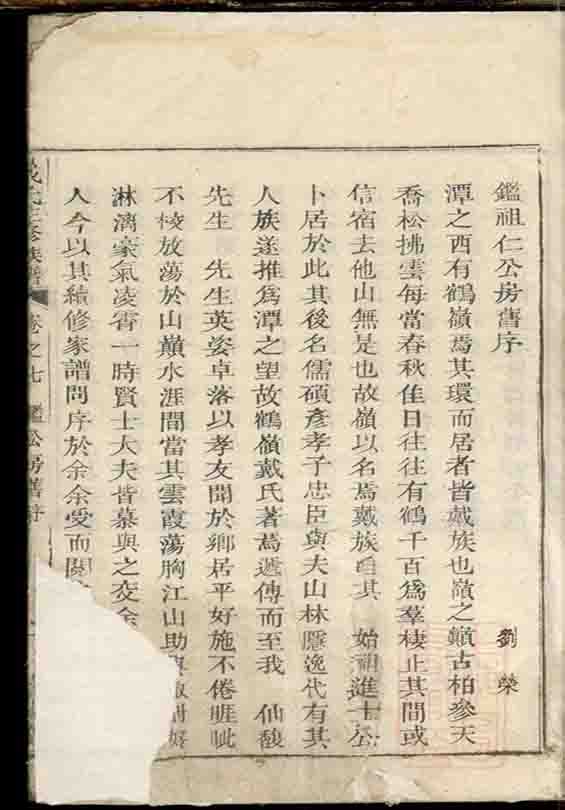 鑑祖仁公房舊序
劉榮
潭之西有鶴嶺焉其環而居者皆戴族也嶺之巔古柏參天
喬松拂雲每當春秋佳日往往有鶴千百爲羣棲止其間或
信宿去他山無是也故嶺以名焉戴族自其 始祖進士公
卜居於此其後名儒碩彥孝子忠臣與夫山林隱逸代有其
人族遂推爲潭之望故鶴嶺戴氏著焉遞傳而至我 仙馥
先生 先生英姿卓落以孝友聞於鄉居平好施不倦睚眦
不校放蕩於山巔水涯間當其雲霞蕩胸江山助興
淋漓豪氣凌霄一時賢士大夫皆慕與之交余
人今以其續修家譜問序於余余受而閱
戴氏三修族譜 卷之七 鑑公房舊序